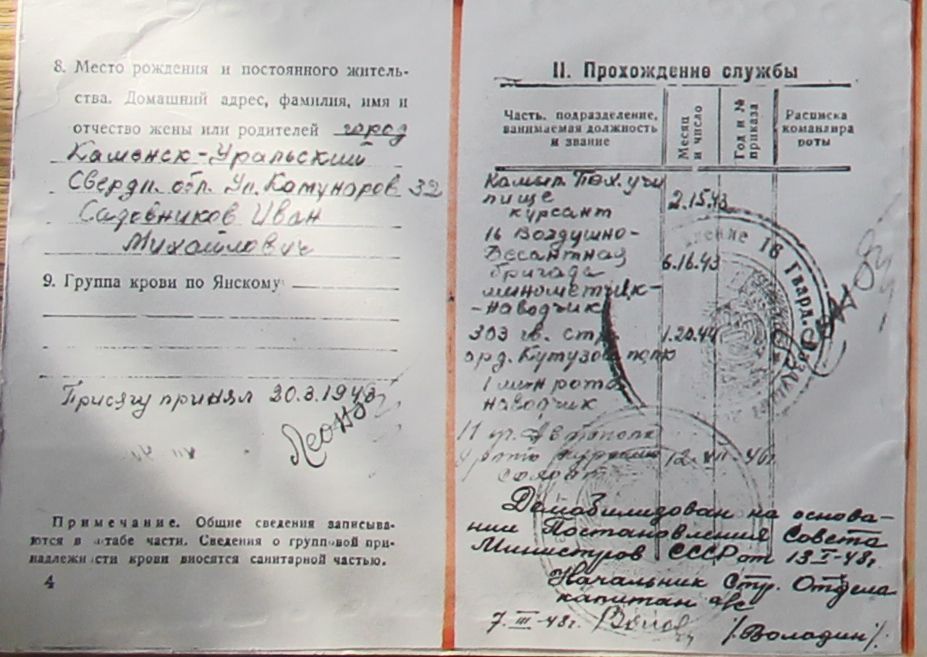 8. Место рождения и постоянного житель-
ства. Домашний адрес, фамилия, имя и
отчество жены или родителей город
Каменск-Уральский
Свердл. обл. Ул. Комунаров 32
Садовников Иван
Михайлович
9. Группа крови по Янскому
Присягу принял 20.3.1943
Примечание. Общие сведения записыва-
ются в штабе части. Сведения о групповой при-
надлежности крови вносятся санитарной частью.
4
II. Прохождение службы
Часть, подразделение,
занимаемая должность
и звание
Месяц
и число
Год и №
приказа
Расписка
командира
роты
Камыш. Пех. учи
лище 2.15.43
курсант
16 Воздушно-
Десантная
бригада 6.16.43
минометчик-
-наводчик
303 гв. стр. 1.20.44
орд. Кутузова полк
1 мин рота
наводчик
солдат 12. VII-46г
Демобилизован на основа-
нии Постановления Совета
Министров СССР от 13 I-48г.
Начальник Стр. Отдела
капитан а/с
7. III-48г. /Володин/.
16 Гвард.